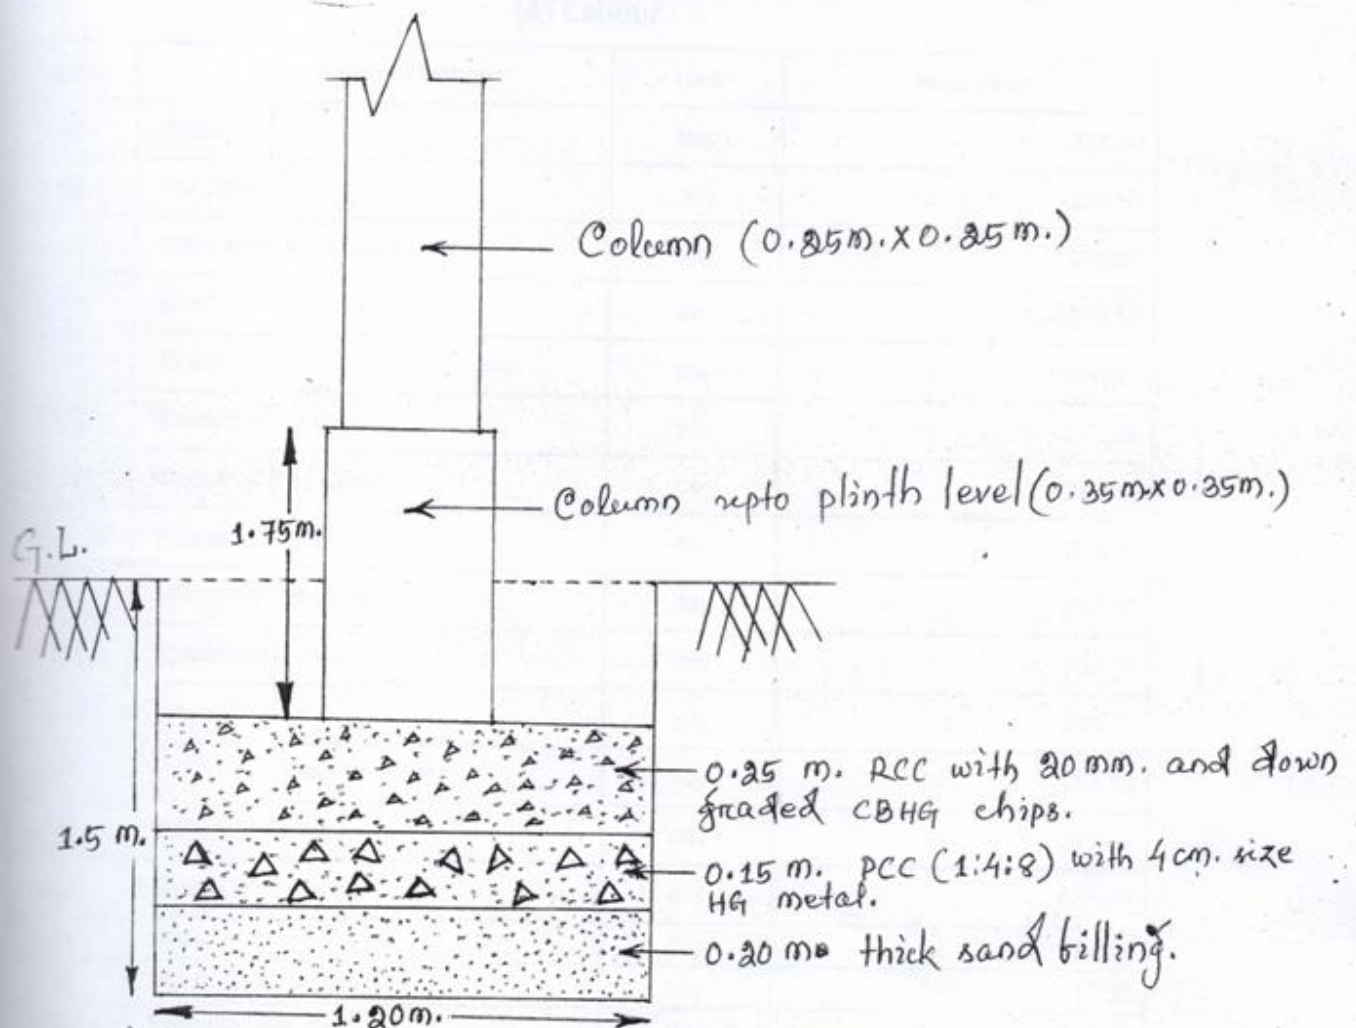 Column (0.25m. X 0.25m.)
Column upto plinth level (0.35m x 0.35m.)
1.75m.
G.L.
0.25 m. RCC with 20mm. and down
graded CBHG chips.
1.5 m.
0.15 m. PCC (1:4:8) with 4cm. size
HG metal.
0.20 m. thick sand filling.
1.20m.